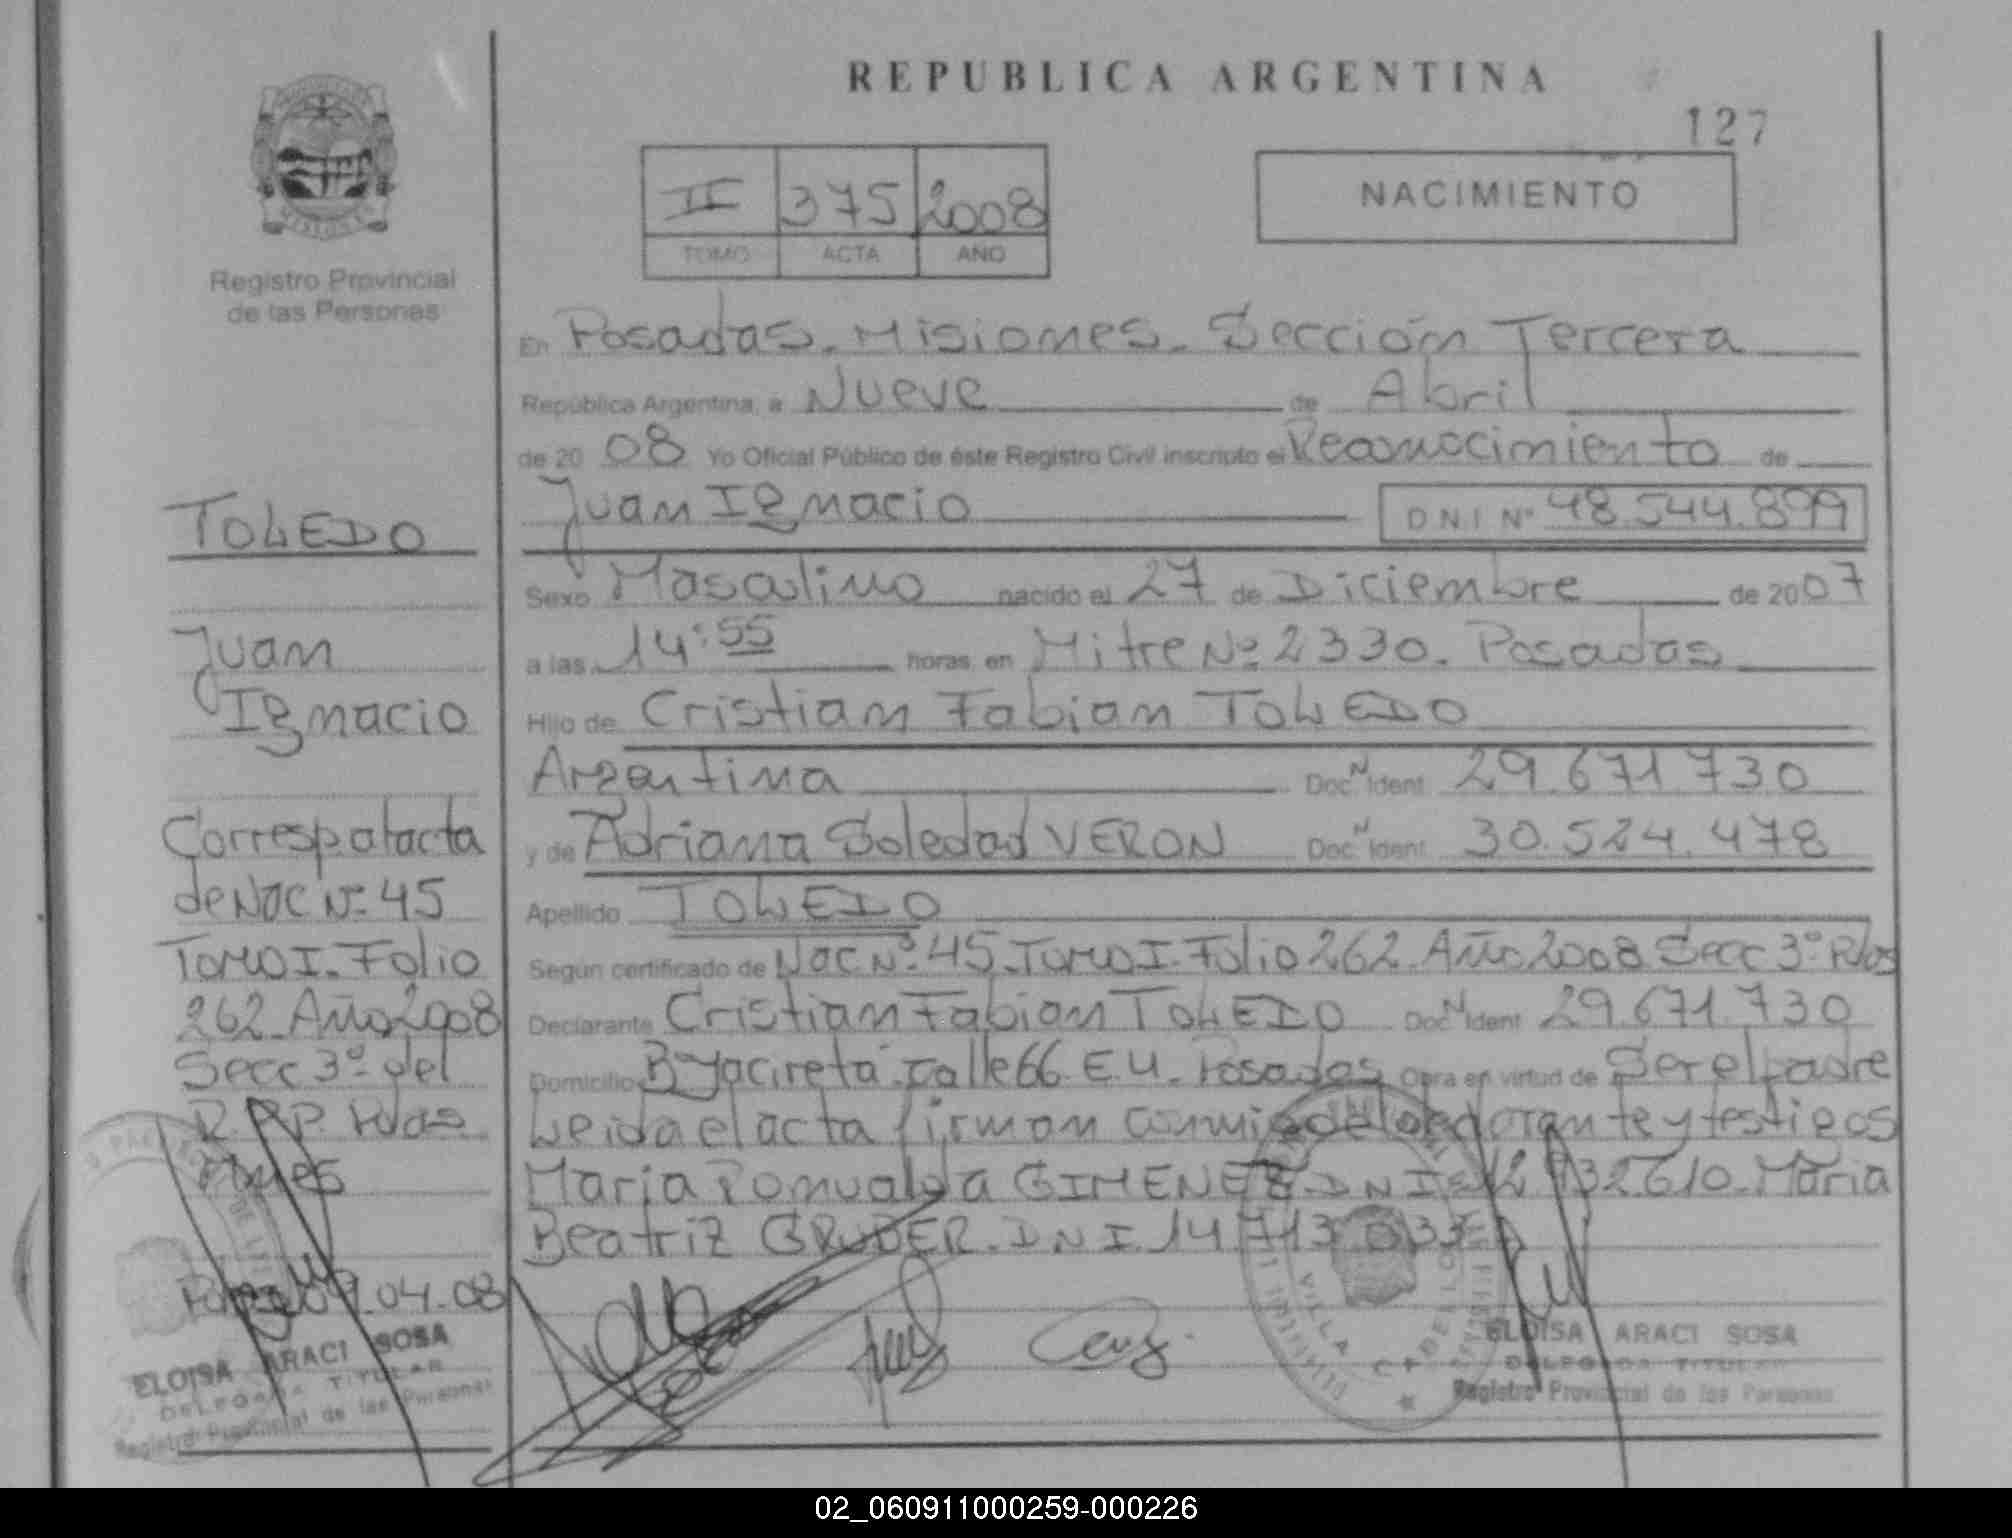 REPUBLICA ARGENTINA
127
II 375 2008
TOMO ACTA AÑO
NACIMIENTO
Registro Provincial
de las Personas
En Posadas. Misiones. Sección Tercera
República Argentina, a Nueve de Abril
de 20 08 Yo Oficial Público de éste Registro Civil inscripto el Reconocimiento de
Juan Ignacio DNI Nº 48.544.899
Sexo Masculino nacido el 27 de Diciembre de 2007
a las 14:55 horas en Mitre Nº 2330. Posadas
Hijo de Cristian Fabian TOLEDO
Argentina Doc. Ident. 29.671.730
y de Adriana Soledad VERON Doc. Ident. 30.524.478
Apellido TOLEDO
Según certificado de Nac Nº 45. Tomo I. Folio 262. Año 2008 Secc 3º Pdas
Declarante Cristian Fabian TOLEDO Doc. Ident. 29.671.730
Domicilio Bº Yacireta calle 66 E.U. Posadas Obra en virtud de Ser el padre
Leida el acta firman conmigo el declarante y testigos
Maria Romualda GIMENEZ DNI 12.932610. Maria
Beatriz GRUBER. DNI. 14 713 033
ELOISA ARACI SOSA
DELEGADA TITULAR
Registro Provincial de las Personas
TOLEDO
Juan
Ignacio
Corresp al acta
de Nac Nº 45
Tomo I. Folio
262. Año 2008
Secc 3º del
R.P.P. Pdas
Mnes
09.04.08
ELOISA ARACI SOSA
DELEGADA TITULAR
Registro Provincial de las Personas
VILLA CABELLO
02_060911000259-000226